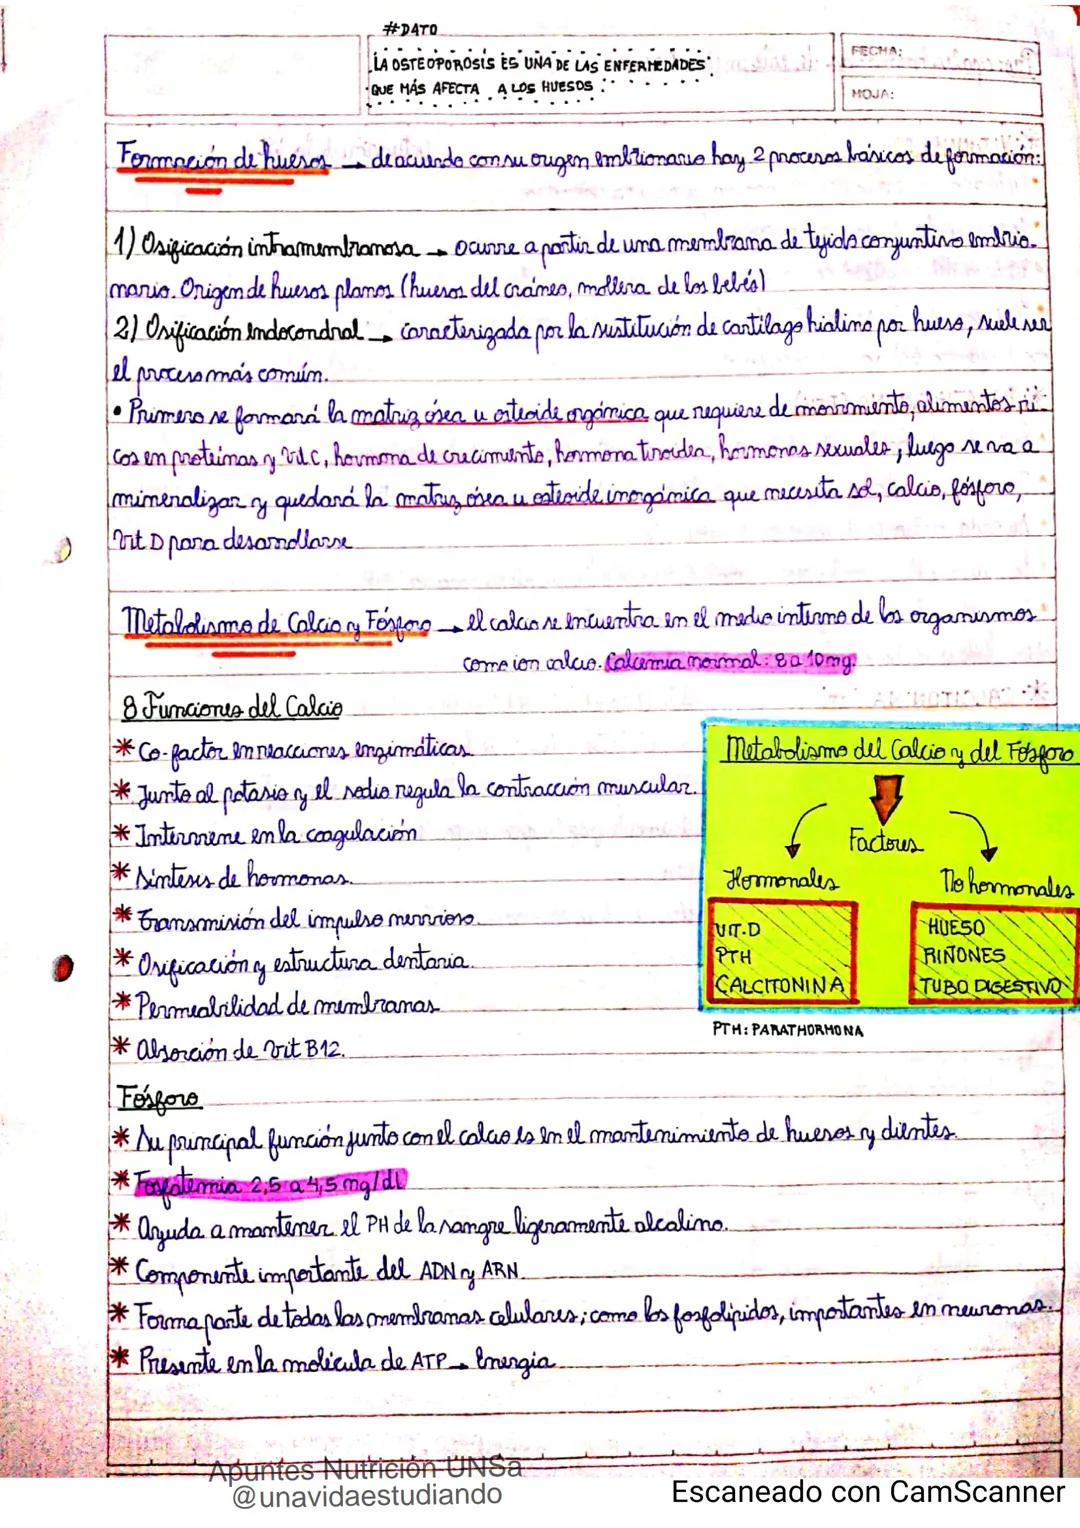 #DATO
LA OSTEOPOROSIS ES UNA DE LAS ENFERMEDADES
QUE MÁS AFECTA A LOS HUESOS
FECHA:
HOJA:
Formación de huesos → de acuerdo con su origen embrionario hay 2 procesos básicos de formación:
1) Osificación intramembranosa → ocurre a partir de una membrana de tejido conjuntivo embrio-
nario. Origen de huesos planos (huesos del cráneo, mollera de los bebés)
2) Osificación endocondral → caracterizada por la sustitución de cartílago hialino por hueso, suele ser
el proceso más común.
• Primero se formará la matriz ósea u osteoide orgánica que requiere de movimiento, alimentos ri-
cos en proteínas y Vit C, hormona de crecimiento, hormona tiroidea, hormonas sexuales; luego se va a
mineralizar y quedará la matriz ósea u osteoide inorgánica que necesita sol, calcio, fósforo,
Vit D para desarrollarse
Metabolismo de Calcio y Fósforo → el calcio se encuentra en el medio interno de los organismos
como ion calcio. Calcemia normal: 8 a 10 mg.
8 Funciones del Calcio
* Co-factor en reacciones enzimáticas
* Junto al potasio y el sodio regula la contracción muscular.
* Interviene en la coagulación
* Síntesis de hormonas.
* Transmisión del impulso nervioso.
* Osificación y estructura dentaria.
* Permeabilidad de membranas
* Absorción de Vit B12.
Metabolismo del Calcio y del Fósforo
Factores
Hormonales
No hormonales
VIT.D
PTH
CALCITONINA
HUESO
RIÑONES
TUBO DIGESTIVO
PTH: PARATHORMONA
Fósforo
* Su principal función junto con el calcio es en el mantenimiento de huesos y dientes.
* Fosfatemia 2,5 a 4,5 mg/dl
* Ayuda a mantener el PH de la sangre ligeramente alcalino.
* Componente importante del ADN y ARN.
* Forma parte de todas las membranas celulares; como los fosfolípidos, importantes en neuronas.
* Presente en la molécula de ATP → Energía
Apuntes Nutrición UNSa
@unavidaestudiando
Escaneado con CamScanner